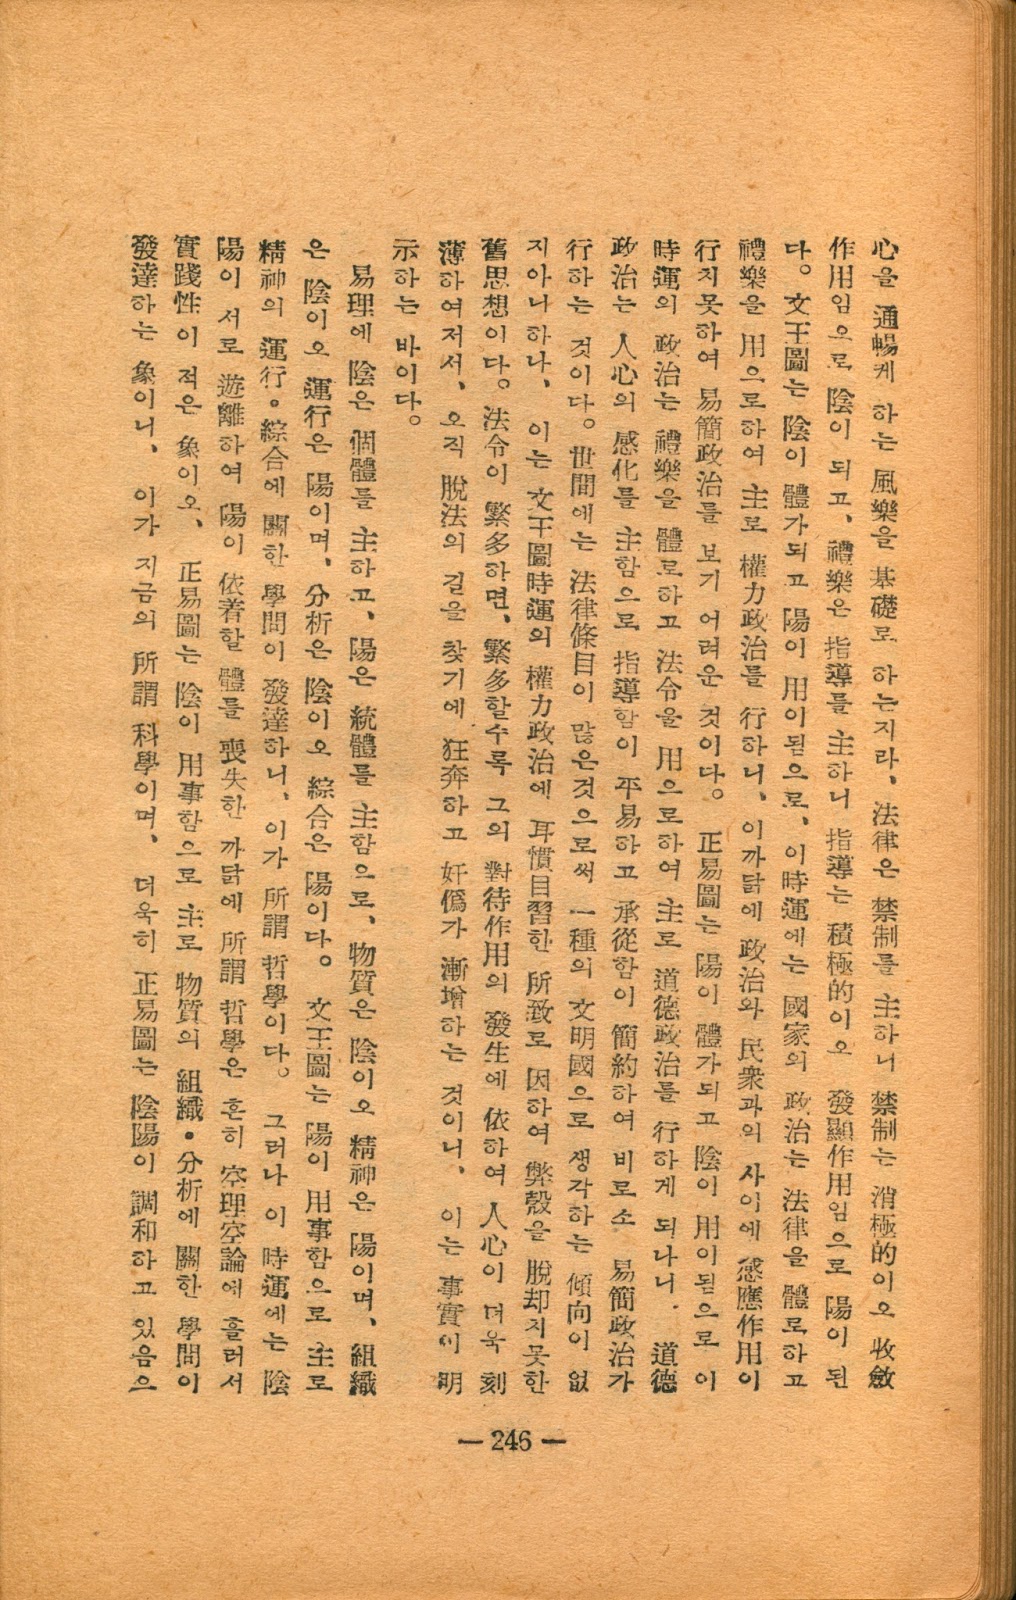 心을 通暢케 하는 風樂을 基礎로 하는지라、法律은 禁制를 主하니 禁制는 消極的이오 收斂
作用임으로 陰이 되고、禮樂은 指導를 主하니 指導는 積極的이오 發顯作用임으로 陽이 된
다。文王圖는 陰이 體가되고 陽이 用이됨으로、이時運에는 國家의 政治는 法律을 體로하고
禮樂을 用으로하여 主로 權力政治를 行하니、이까닭에 政治와 民衆과의 사이에 感應作用이
行치못하여 易簡政治를 보기 어려운 것이다。正易圖는 陽이 體가되고 陰이 用이됨으로 이
時運의 政治는 禮樂을 體로하고 法令을 用으로하여 主로 道德政治를 行하게 되나니. 道德
政治는 人心의 感化를 主함으로 指導함이 平易하고 承從함이 簡約하여 비로소 易簡政治가
行하는 것이다。世間에는 法律條目이 많은것으로써 一種의 文明國으로 생각하는 傾向이 없
지아니하나、이는 文王圖時運의 權力政治에 耳慣目習한 所致로 因하여 弊殼을 脫却지못한
舊思想이다。法令이 繁多하면、繁多할수록 그의 對待作用의 發生에 依하여 人心이 더욱 刻
薄하여저서、오직 脫法의 길을 찾기에 狂奔하고 奸僞가 漸增하는 것이니、이는 事實이 明
示하는 바이다。
易理에 陰은 個體를 主하고、陽은 統體를 主함으로、物質은 陰이오 精神은 陽이며、組織
은 陰이오 運行은 陽이며、分析은 陰이오 綜合은 陽이다。文王圖는 陽이 用事함으로 主로
精神의 運行・綜合에 關한 學問이 發達하니、이가 所謂 哲學이다。그러나 이 時運에는 陰
陽이 서로 遊離하여 陽이 依着할 體를 喪失한 까닭에 所謂 哲學은 흔히 空理空論에 흘러서
實踐性이 적은 象이오、正易圖는 陰이 用事함으로 主로 物質의 組織・分析에 關한 學問이
發達하는 象이니、이가 지금의 所謂 科學이며、더욱히 正易圖는 陰陽이 調和하고 있음으
— 246 —